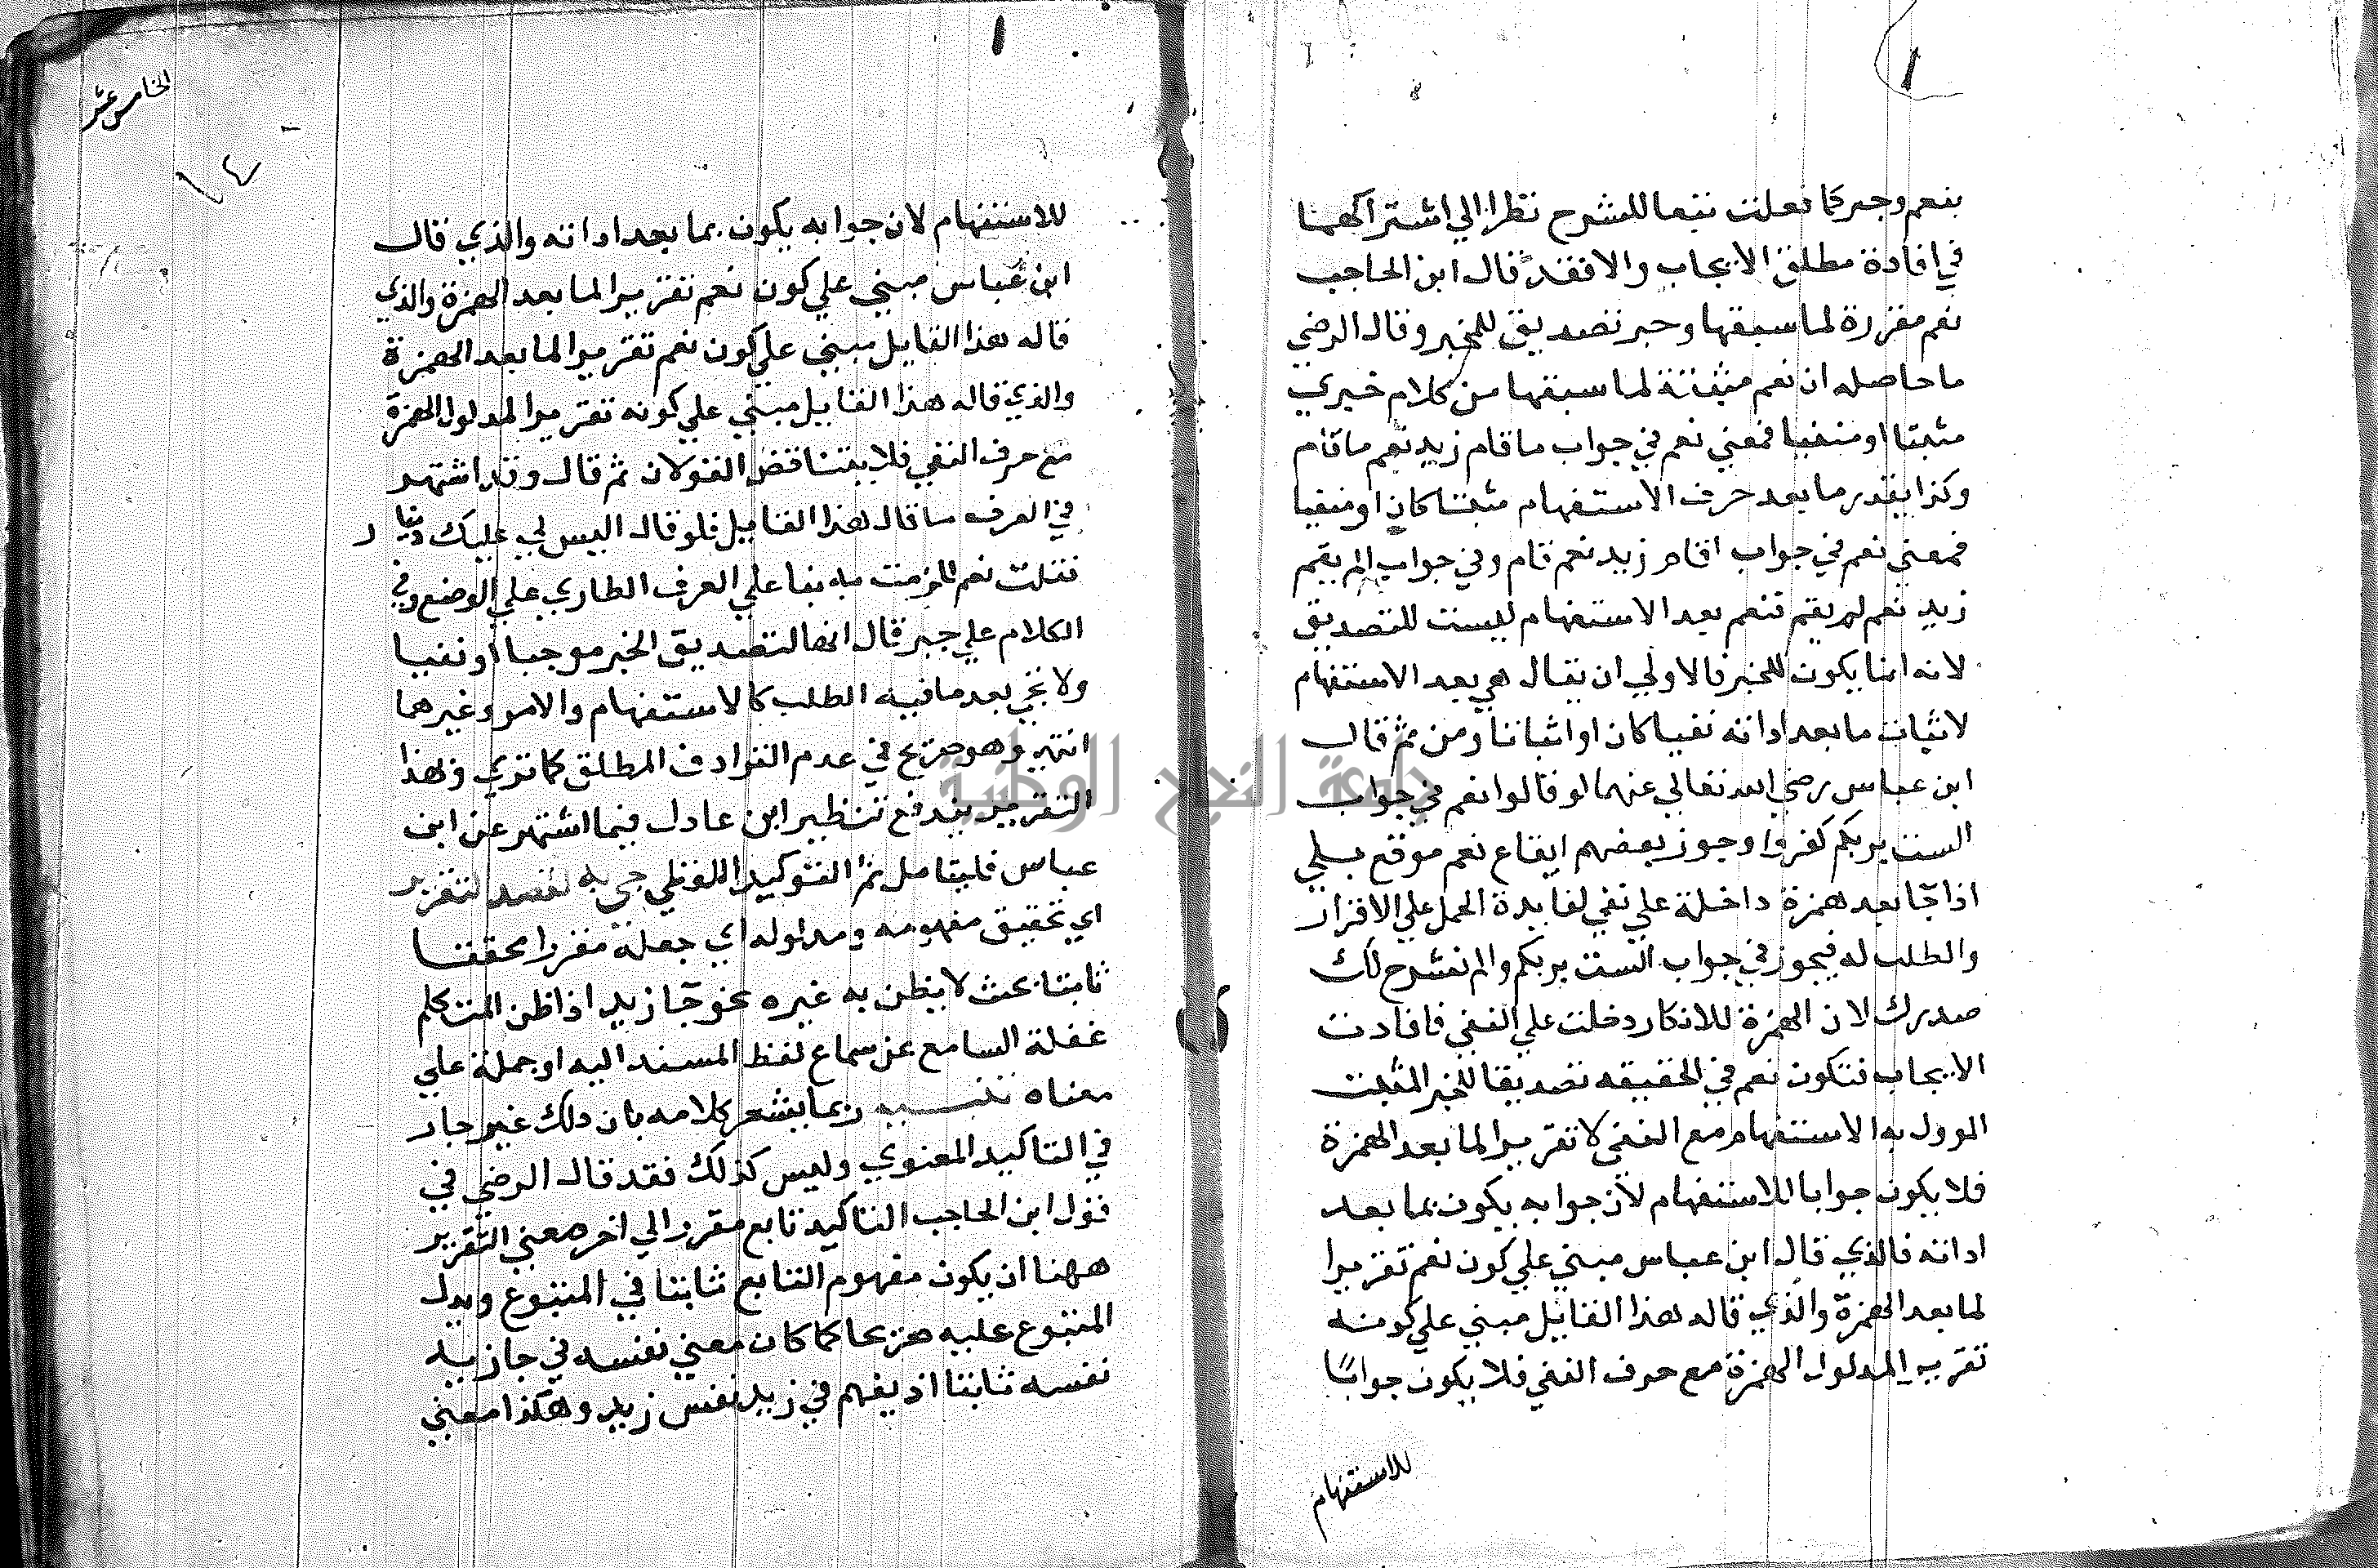 بنعم وجير كما فعلت تبعا للشرح نظرا الي اشتراكهما
في افادة مطلق الايجاب والا فقد قال ابن الحاجب
نعم مقررة لما سبقها وجير تصديق للمخبر وقال الرضي
ما حاصله ان نعم مثبتة لما سبقها من كلام خبري
مثبتا او منفيا فمعني نعم في جواب ما قام زيد نعم ما قام
وكذا يقدر ما بعد حرف الاستفهام مثبتا كان او منفيا
فمعني نعم في جواب اقام زيد نعم قام وفي جواب الم يقم
زيد نعم لم يقم فنعم بعد الاستفهام ليست للتصديق
لانه انما يكون للخبر فالاولي ان يقال هي بعد الاستفهام
لاثبات ما بعد اداته نفيا كان او اثباتا ومن ثم قال
ابن عباس رضي الله تعالي عنهما لو قالوا نعم في جواب
الست بربكم كفروا وجوز بعضهم ايقاع نعم موقع بلي
اذا جا بعد همزة داخلة علي نفي لفايدة الحمل علي الاقرار
والطلب له فيجوز في جواب الست بربكم والم نشرح لك
صدرك لان الهمزة للانكار دخلت علي النفي فافادت
الايجاب فتكون نعم في الحقيقه تصديقا للخبر المثبت
الموول به الاستفهام مع النفي لا تقريرا لما بعد الهمزة
فلا يكون جوابا للاستفهام لان جوابه يكون بما بعد
اداته فالذي قال ابن عباس مبني علي كون نعم تقريرا
لما بعد الهمزة والذي قاله هذا القايل مبني علي كونه
تقرير المدلول الهمزة مع حرف النفي فلا يكون جوابا
للاستفهام
الخامس عشر
للاستفهام لان جوابه يكون بما بعد اداته والذي قال
ابن عباس مبني علي كون نعم تقريرا لما بعد الهمزة والذي
قاله هذا القايل مبني علي كون نعم تقريرا لما بعد الهمزة
والذي قاله هذا القايل مبني علي كونه تقريرا لمدلول الهمزة
مع حرف النفي فلا يتناقض القولان ثم قال وقد اشتهر
في العرف ما قال هذا القايل فلو قال اليس لي عليك دينار
فقلت نعم الزمت به بنا علي العرف الطاري علي الوضع وفي
الكلام علي جير قال انها لتصديق الخبر موجبا او نفيا
ولا تجي بعد ما فيه الطلب كالاستفهام والامر وغيرهما
انتهي وهو صريح في عدم الترادف المطلق كما تري وبهذا
التقرير يندفع تنظير ابن عادل فيما اشتهر عن ابن
عباس فليتامل ثم التوكيد اللفظي جي به لقصد التقرير
اي تحقيق مفهومه ومدلوله اي جعله مقررا محققا
ثابتا بحث لا يظن به غيره نحو جا زيد اذا ظن المتكلم
غفلة السامع عن سماع لفظ المسند اليه او حمله علي
معناه تنبيه ربما يشعر كلامه بان ذلك غير جار
في التاكيد المعنوي وليس كذلك فقد قال الرضي في
قول ابن الحاجب التاكيد تابع مقرر الي اخره معني التقرير
ههنا ان يكون مفهوم التابع ثابتا في المتبوع ويدل
المتبوع عليه صريحا كما كان معني نفسه في جا زيد
نفسه ثابتا اذ يفهم في زيد نفس زيد وهكذا معني
جامعة النجاح الوطنية